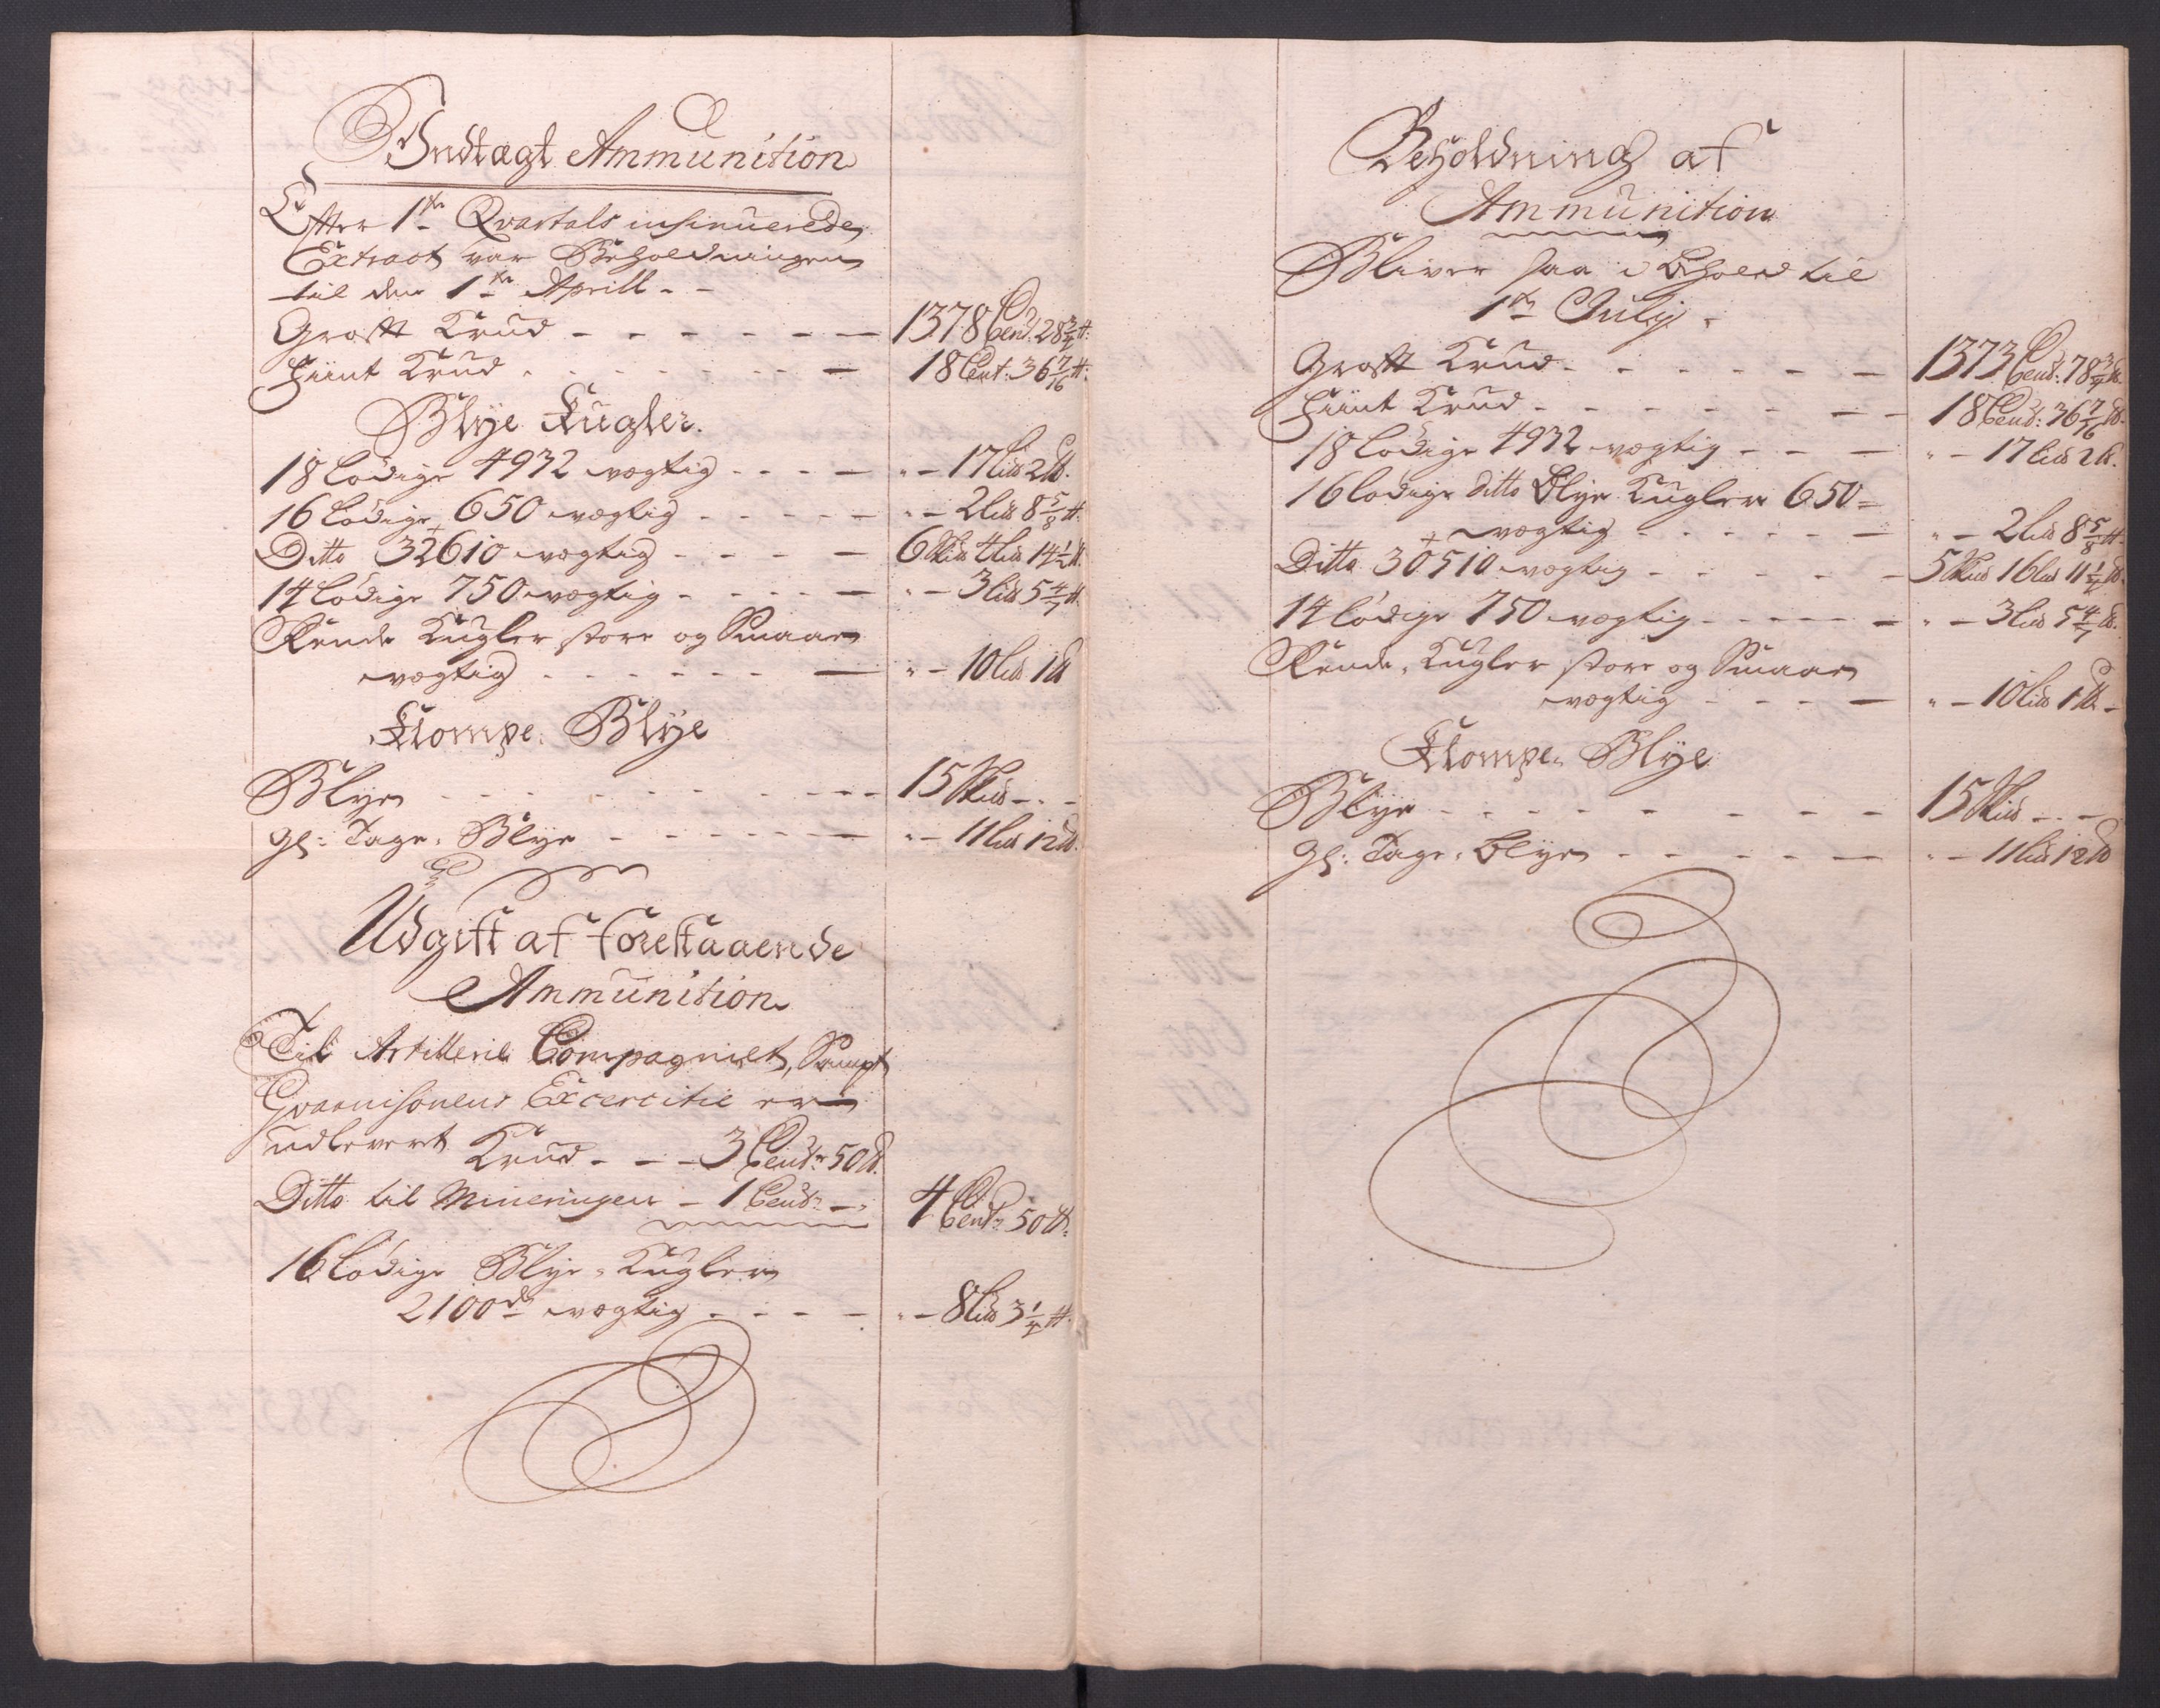 Indtægt Ammunition
Efter 1ste Qvartals insinuerede
Extract var Beholdningen
til den 1ste Aprill - -
Grofft Krud - - - - - - 1378 Cent: 28 3/4 ℔:
Fiint Krud - - - - - - 18 Cent: 36 7/16 ℔:
Blye Kugler.
18 Lödige 4932 vægtig - - - - " - 17 Lis 2 ℔.
16 Lödige 650 vægtig - - - - - " - 2 Lis 8 5/8 ℔:
Ditto 32610 vægtig - - - - 6 Skis 4 Lis 14 1/2 ℔.
14 Lödige 750 vægtig - - - - - " - 3 Lis 5 4/7 ℔.
Runde Kugler store og Smaae
vægtig - - - - - - - " - 10 Lis 1 ℔
Klompe Blye
Blye - - - - - - - - - - 15 Skis - . -
gl: Tage-Blye - - - - - - " - 11 Lis 12 ℔.
Udgift af forestaaende
Ammunition
Til Artillerie Compagniet, Sampt
Gvarnisonens Excercitie er
udlevert Krud - - - 3 Centr 50 ℔.
Ditto til Mineringen - 1 Centr: - " 4 Centr 50 ℔:
16 Lödige Blye-Kugler
2100de vægtig - - - - " - 8 Lis 3 1/4 ℔.
Beholdning af
Ammunition
Bliver saa i Behold til
1ste July.
Grofft Krud - - - - - - 1373 Cent: 78 3/4 ℔.
Fiint Krud - - - - - - - 18 Cent: 36 7/16 ℔.
18 Lödige 4932 vægtig - - - " - 17 Lis 2 ℔.
16 lödige ditto Blye Kugler 650 =
vægtig - - - - - - " - 2 Lis 8 5/8 ℔.
Ditto 30510 vægtig - - - - - 5 Skis 16 Lis 11 1/4 ℔.
14 lödige 750 vægtig - - - - - - " - 3 Lis 5 4/7 ℔.
Runde Kugler store og Smaae
vægtig - - - - " - 10 Lis 1 ℔ -
Klompe Blye
Blye - - - - - - - - 15 Skis - . -
gl: Tage-Blye - - - - - " - 11 Lis 12 ℔